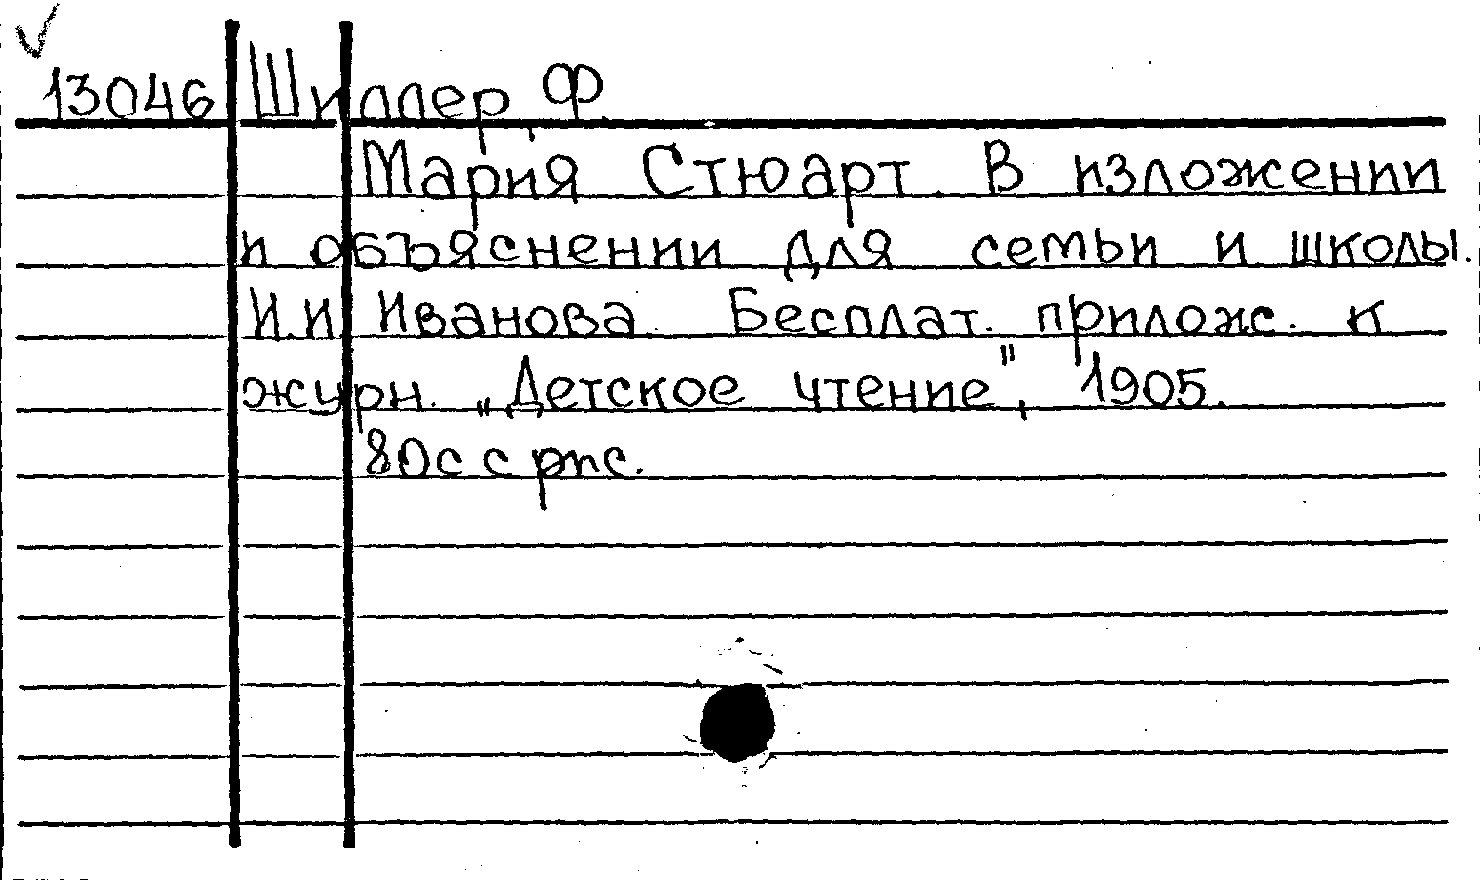 13046 Шиллер, Ф.
Мария Стюарт. В изложении
и объяснении для семьи и школы.
И.И. Иванова. Бесплат. прилож. к
журн. „Детское чтение", 1905.
80с с рис.